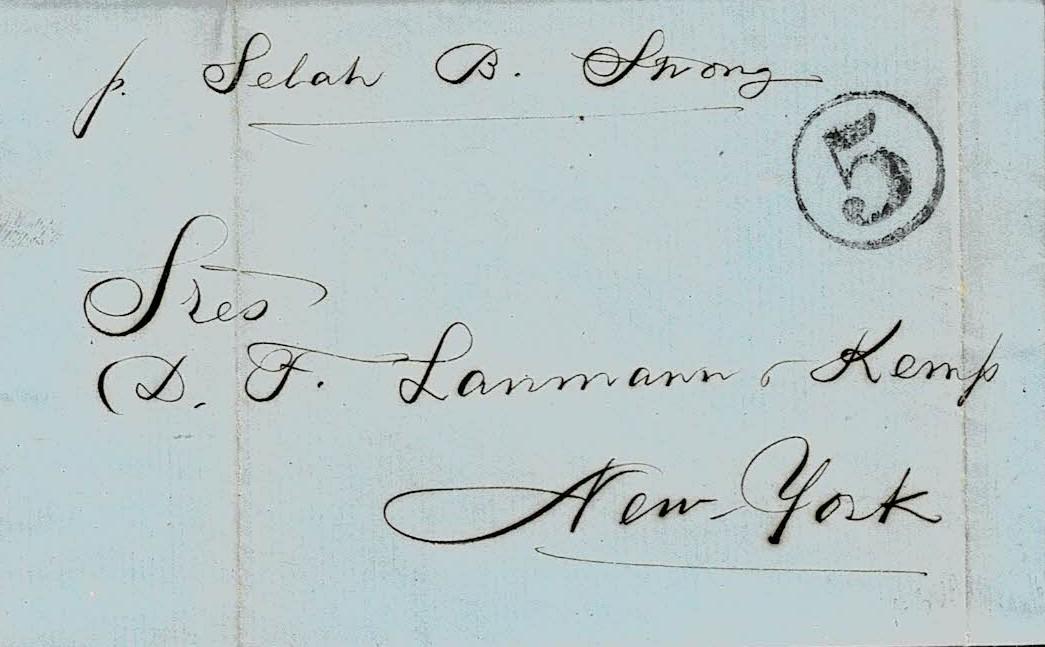 p. Selah B. Strong
5
Sres
D. F. Lanmann & Kemp
New-York